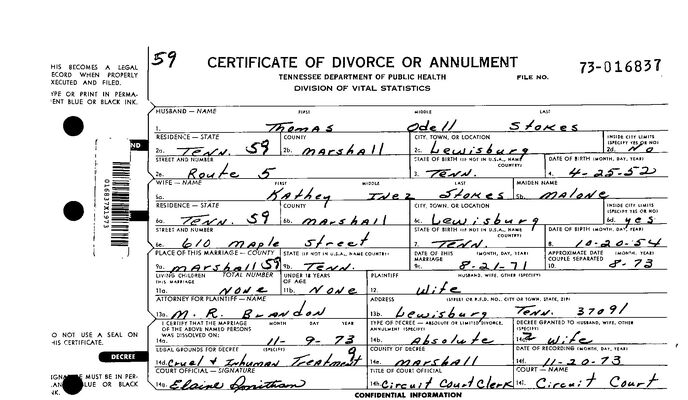 59
CERTIFICATE OF DIVORCE OR ANNULMENT
73-016837
TENNESSEE DEPARTMENT OF PUBLIC HEALTH
FILE NO.
DIVISION OF VITAL STATISTICS
HIS BECOMES A LEGAL
ECORD WHEN PROPERLY
XECUTED AND FILED.
YPE OR PRINT IN PERMA-
ENT BLUE OR BLACK INK.
HUSBAND — NAME FIRST MIDDLE LAST
1. Thomas Odell Stokes
RESIDENCE — STATE COUNTY CITY, TOWN, OR LOCATION INSIDE CITY LIMITS (SPECIFY YES OR NO)
2a. Tenn. 59 2b. marshall 2c. Lewisburg 2d. No
STREET AND NUMBER STATE OF BIRTH (IF NOT IN U.S.A., NAME COUNTRY) DATE OF BIRTH (MONTH, DAY, YEAR)
2e. Route 5 3. Tenn. 4. 4-25-52
WIFE — NAME FIRST MIDDLE LAST MAIDEN NAME
5a. Kathey Inez Stokes 5b. malone
RESIDENCE — STATE COUNTY CITY, TOWN, OR LOCATION INSIDE CITY LIMITS (SPECIFY YES OR NO)
6a. Tenn. 59 6b. marshall 6c. Lewisburg 6d. yes
STREET AND NUMBER STATE OF BIRTH (IF NOT IN U.S.A., NAME COUNTRY) DATE OF BIRTH (MONTH, DAY, YEAR)
6e. 610 maple Street 7. Tenn. 8. 10-20-54
PLACE OF THIS MARRIAGE — COUNTY STATE (IF NOT IN U.S.A., NAME COUNTRY) DATE OF THIS MARRIAGE (MONTH, DAY, YEAR) APPROXIMATE DATE COUPLE SEPARATED (MONTH, YEAR)
9a. marshall 59 9b. Tenn. 9c. 8-21-71 10. 8-73
LIVING CHILDREN THIS MARRIAGE TOTAL NUMBER UNDER 18 YEARS OF AGE PLAINTIFF HUSBAND, WIFE, OTHER (SPECIFY)
11a. None 11b. None 12. Wife
ATTORNEY FOR PLAINTIFF — NAME ADDRESS (STREET OR R.F.D. NO., CITY OR TOWN, STATE, ZIP)
13a. M. R. Brandon 13b. Lewisburg Tenn. 37091
I CERTIFY THAT THE MARRIAGE OF THE ABOVE NAMED PERSONS WAS DISSOLVED ON: MONTH DAY YEAR TYPE OF DECREE — ABSOLUTE OR LIMITED DIVORCE, ANNULMENT (SPECIFY) DECREE GRANTED TO HUSBAND, WIFE, OTHER (SPECIFY)
14a. 11-9-73 14b. Absolute 14c. 2 Wife
LEGAL GROUNDS FOR DECREE (SPECIFY) COUNTY OF DECREE DATE OF RECORDING (MONTH, DAY, YEAR)
14d. Cruel & Inhuman Treatment 9 14e. marshall 14f. 11-20-73
COURT OFFICIAL — SIGNATURE TITLE OF COURT OFFICIAL COURT — NAME
14g. Elaine 14h. Circuit Court Clerk 14i. Circuit Court
CONFIDENTIAL INFORMATION
ND
016837X1973
O NOT USE A SEAL ON
HIS CERTIFICATE.
DECREE
IGNATURE MUST BE IN PER-
BLUE OR BLACK
NK.